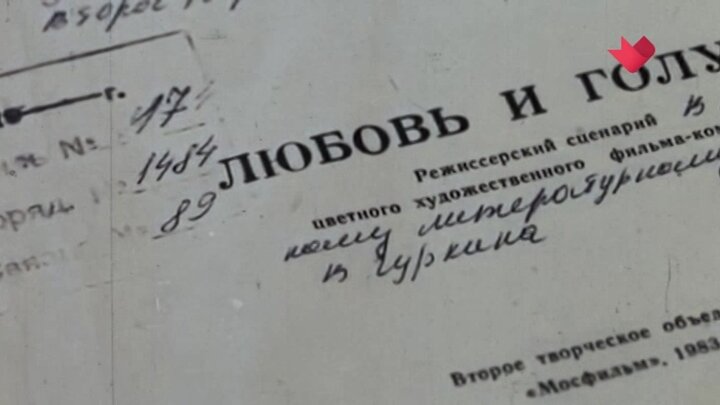 второе
г.
№ 171
1484
89
ЛЮБОВЬ И ГОЛУ
Режиссерский сценарий В
цветного художественного фильма-ко
ному литературному
В Гуркина
Второе творческое объед
«Мосфильм», 1983